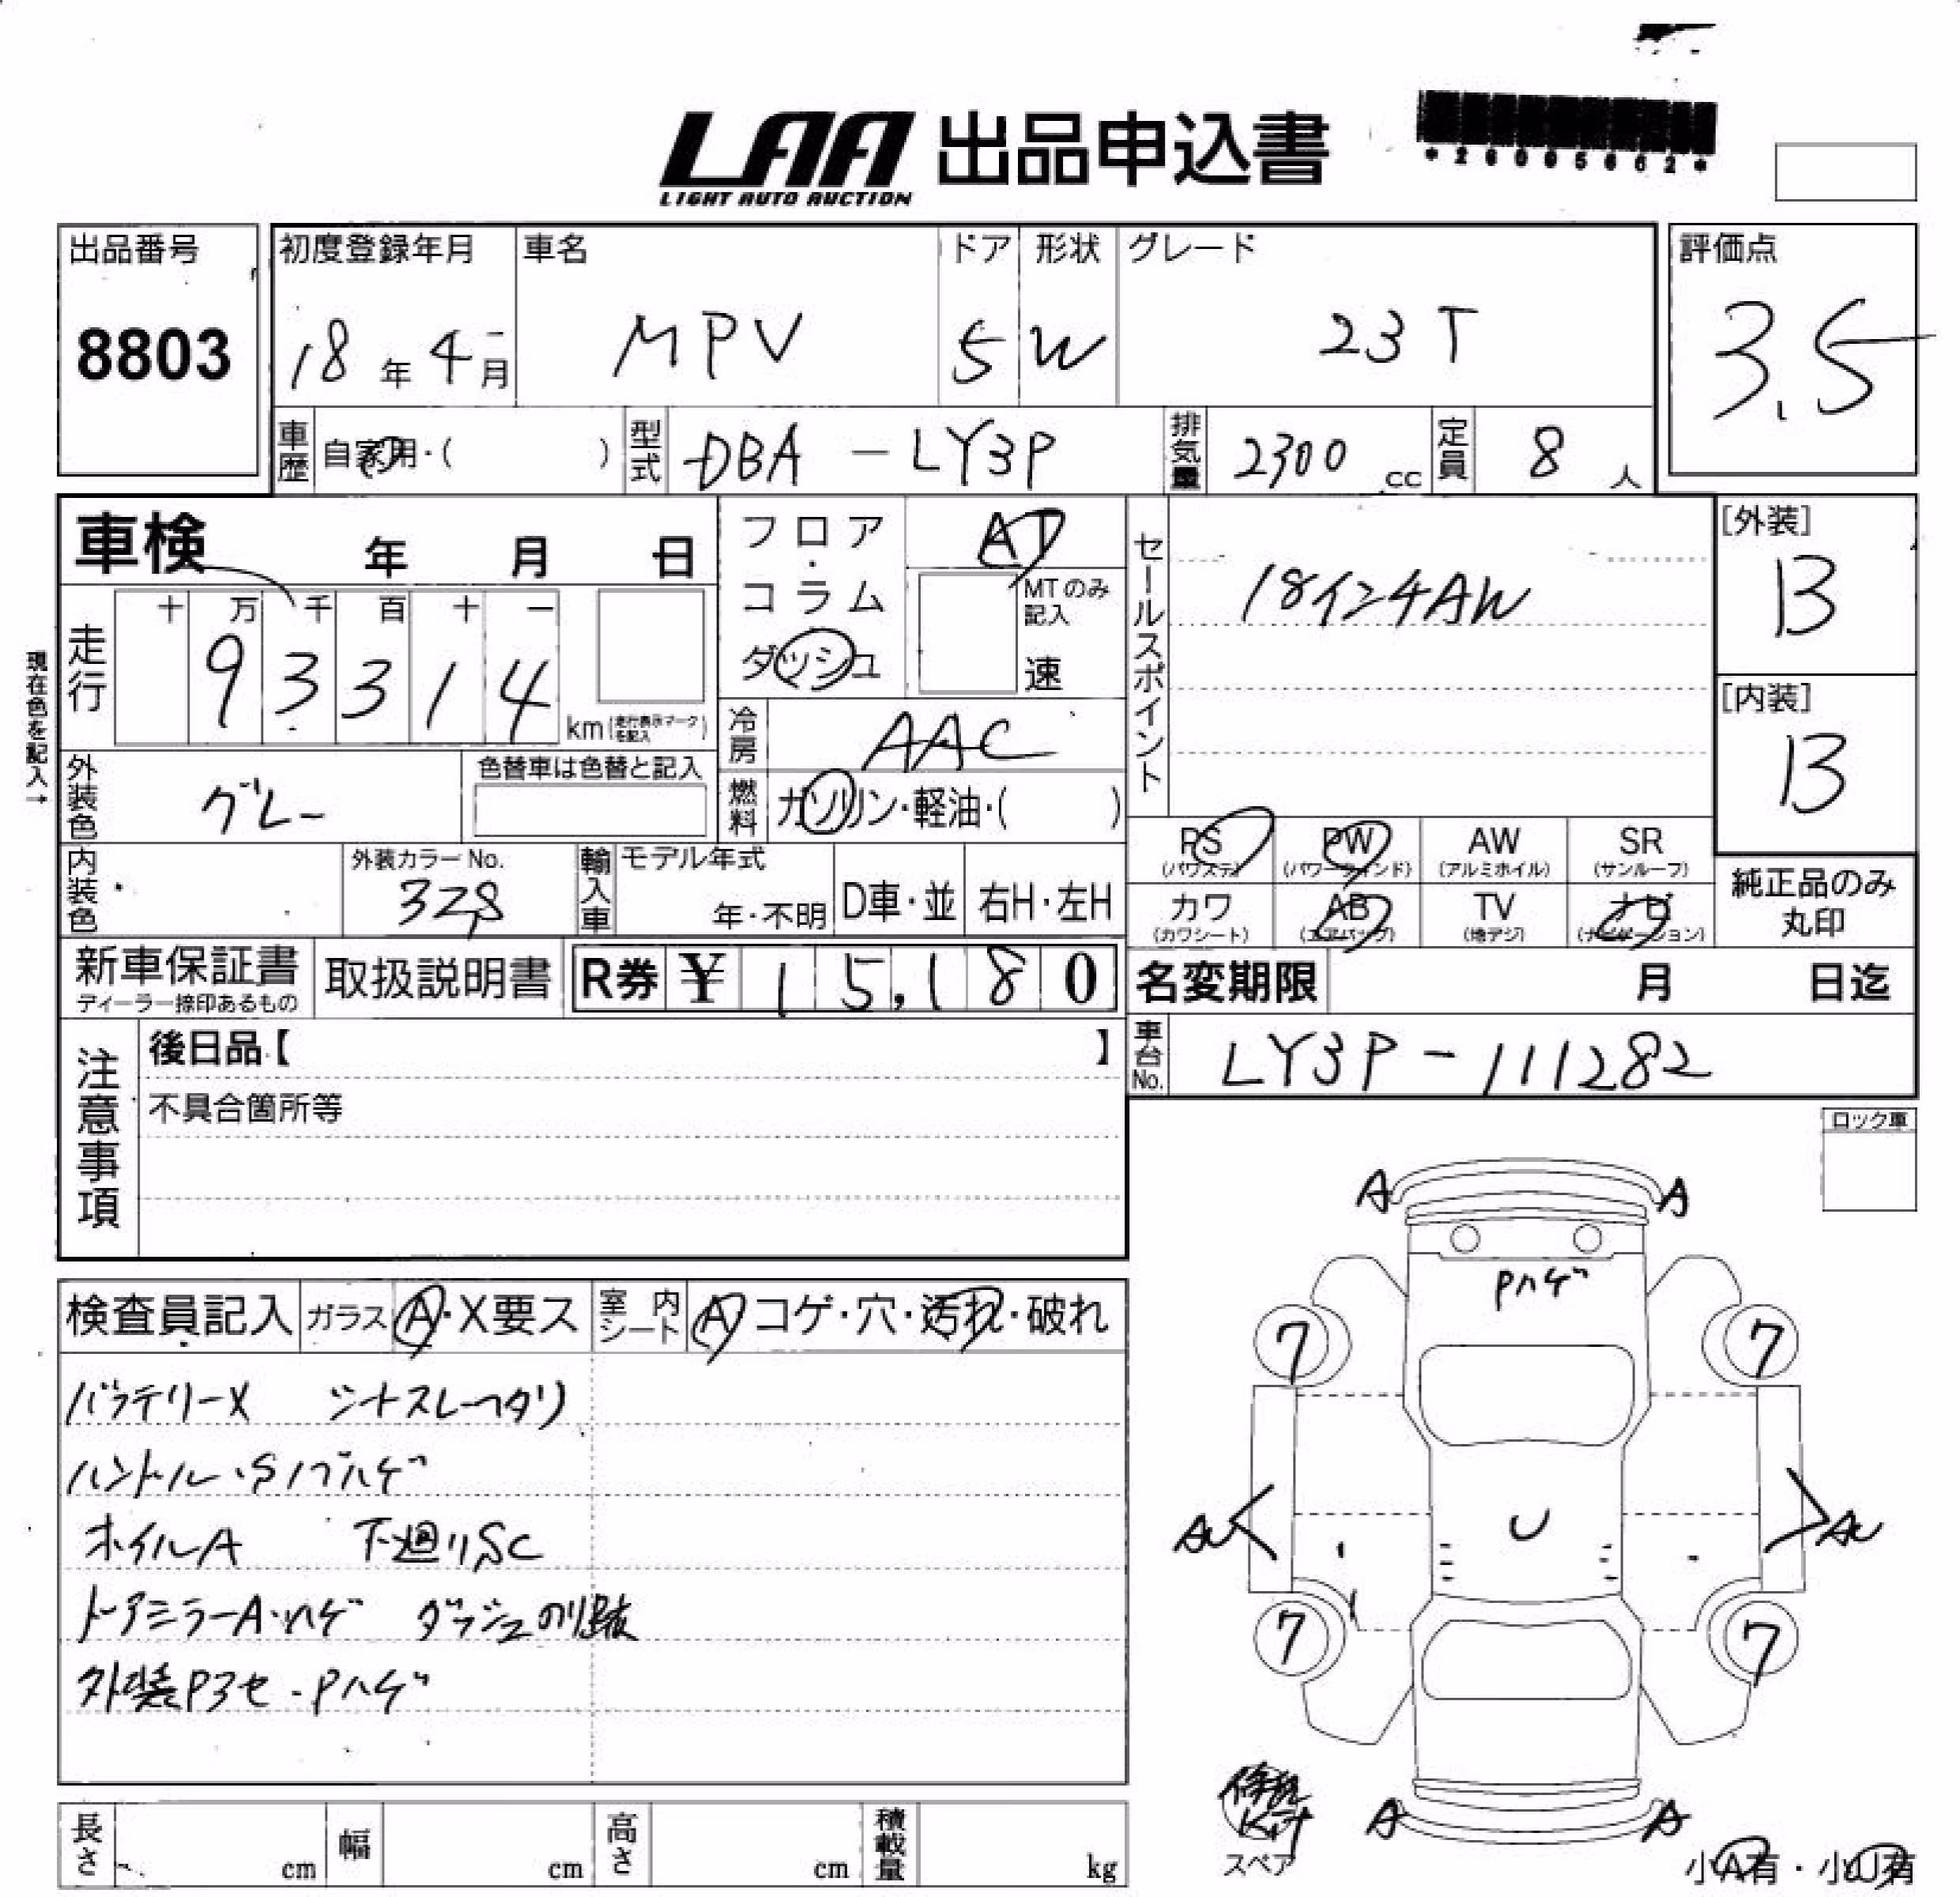 LAA 出品申込書
LIGHT AUTO AUCTION
*26005662*
出品番号
8803
初度登録年月
18年4月
車名
MPV
ドア
5
形状
W
グレード
23T
評価点
3.5
車歴
自家用・( )
型式
DBA-LY3P
排気量
2300 cc
定員
8人
車検 年 月 日
フロア・コラム
ダッシュ
AT
MTのみ記入
速
セールスポイント
18インチAW
[外装]
B
[内装]
B
現在色を記入→
走行
十万千百十一
93314
km(走行表示マークを記入)
冷房
AAC
外装色
グレー
色替車は色替と記入
燃料
ガソリン・軽油・( )
内装色
外装カラーNo.
32S
輸入車
モデル年式
年・不明
D車・並
右H・左H
PS
(パワステ)
PW
(パワーウィンド)
AW
(アルミホイル)
SR
(サンルーフ)
カワ
(カワシート)
AB
(エアバッグ)
TV
(地デジ)
ナビ
(ナビゲーション)
純正品のみ
丸印
新車保証書
ディーラー捺印あるもの
取扱説明書
R券 ¥ 15,180
名変期限 月 日迄
車台No.
LY3P-111282
注意事項
後日品【 】
不具合箇所等
ロック車
検査員記入
ガラス
A・X要ス
室内シート
A コゲ・穴・汚れ・破れ
バッテリーX シナスレヘタリ
ハンドル・Sノブハゲ
ホイルA 下廻りSC
ドアミラーA・ハゲ ダッシュのり跡
外装PヤセPハゲ
A A
Pハゲ
7 7
AU U AU
7 7
A A
修理Kit
スペア
小A有・小U有
長さ cm
幅 cm
高さ cm
積載量 kg